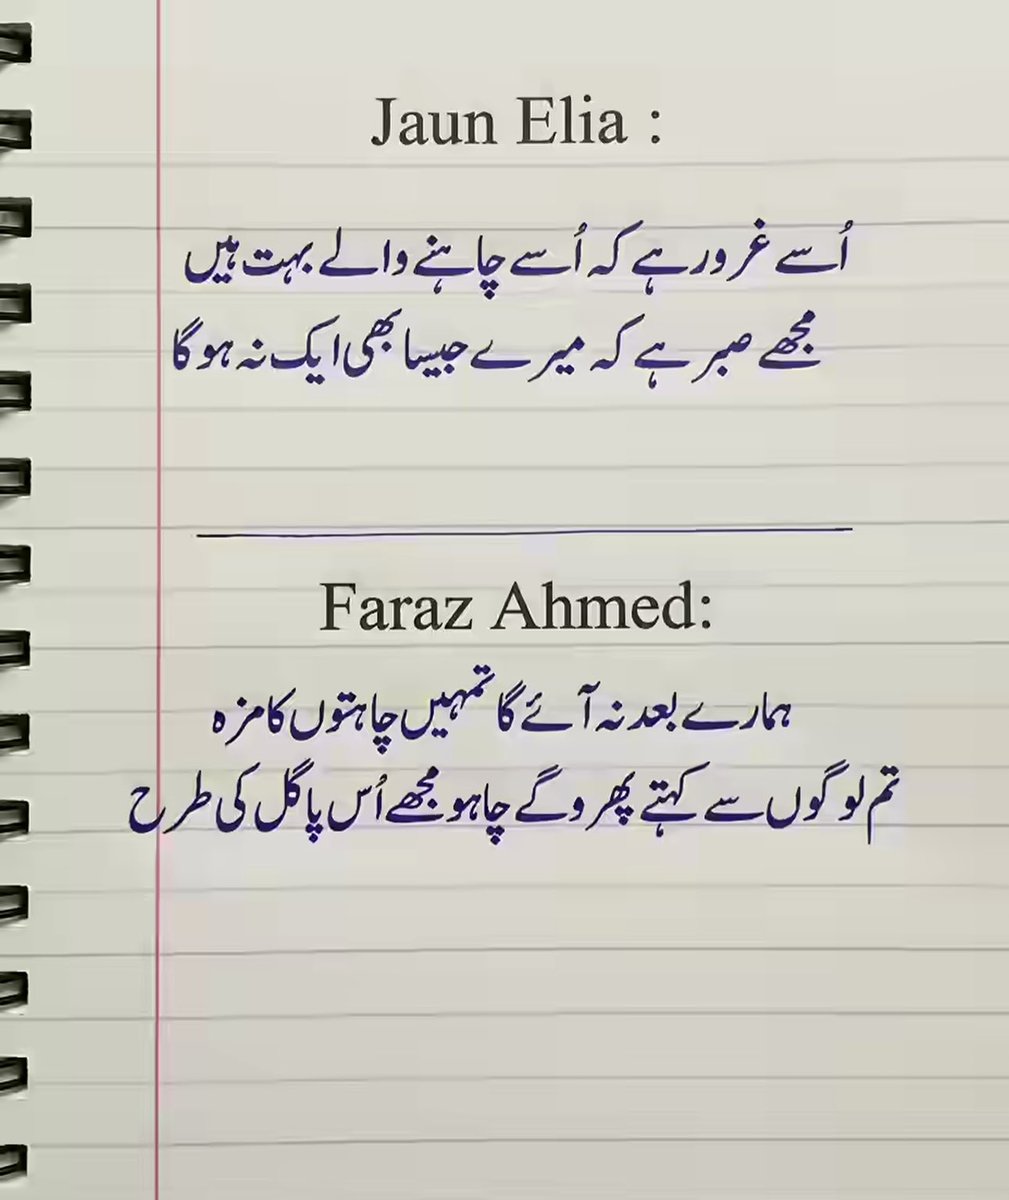 Jaun Elia :
اُسے غرور ہے کہ اُسے چاہنے والے بہت ہیں
مجھے صبر ہے کہ میرے جیسا بھی ایک نہ ہو گا
Faraz Ahmed:
ہمارے بعد نہ آئے گا تمہیں چاہتوں کا مزہ
تم لوگوں سے کہتے پھرو گے چاہو مجھے اُس پاگل کی طرح